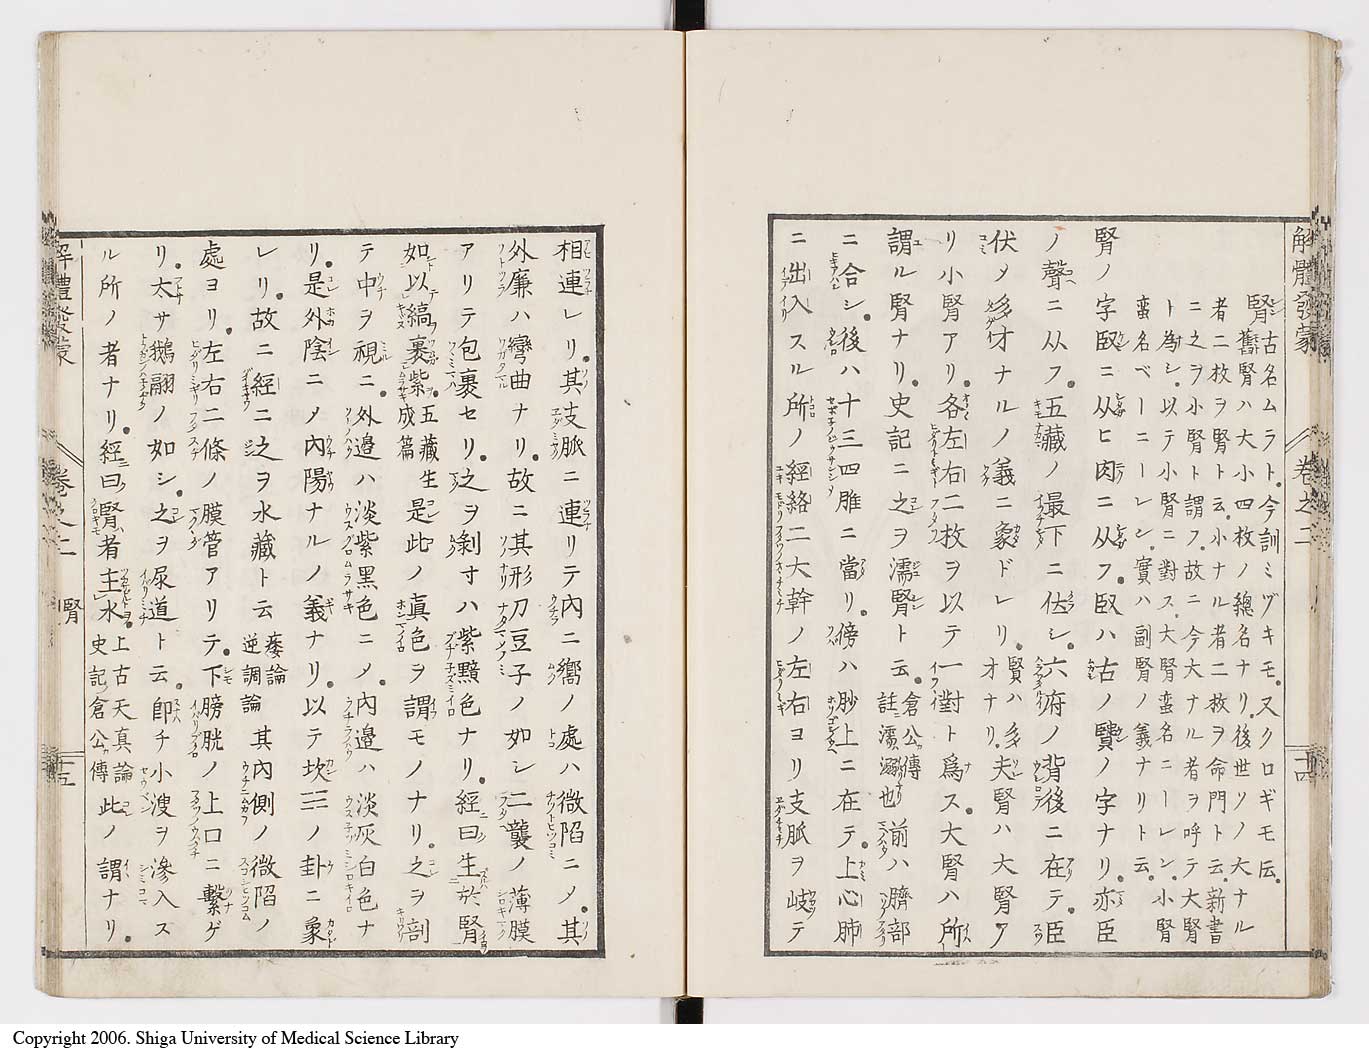 解體發蒙 卷之二 十四
腎 古名ムラト。今訓ミヅキモ。又クロギモ云。
舊腎ハ大小四枚ノ總名ナリ。後世ソノ大ナル
者二枚ヲ腎ト云。小ナル者二枚ヲ命門ト云。新書
ニ之ヲ小腎ト謂フ。故ニ今大ナル者ヲ呼テ大腎
ト為シ。以テ小腎ニ對ス。大腎蛮名ニーレン。小腎
蛮名ベーニーレン。實ハ副腎ノ義ナリト云。
腎ノ字臤ニ从ヒ肉ニ从フ。臤ハ古ノ賢ノ字ナリ。亦臣
ノ聲ニ从フ。五藏ノ最下ニ伏シ。六府ノ背後ニ在テ。臣
伏メ多才ナルノ義ニ象ドレリ。賢ハ多才ナリ。夫腎ハ大腎ア
リ小腎アリ。各左右二枚ヲ以テ一對ト爲ス。大腎ハ所
謂ル腎ナリ。史記ニ之ヲ濡腎ト云。倉公傳註濡溺也前ハ臍部
ニ合シ。後ハ十三四雎ニ當リ。傍ハ䏚上ニ在テ。上心肺
ニ出入スル所ノ經絡二大幹ノ左右ヨリ支脈ヲ岐テ
相連レリ。其支脈ニ連リテ内ニ嚮ノ處ハ微陷ニメ。其
外廉ハ彎曲ナリ。故ニ其形刀豆子ノ如シ二襲ノ薄膜
アリテ包裹セリ。之ヲ剝寸ハ紫黯色ナリ。經曰生於腎
如以縞裹紫。五藏生成篇是此ノ眞色ヲ謂モノナリ。之ヲ剖
テ中ヲ視ニ。外邉ハ淡紫黑色ニメ。内邉ハ淡灰白色ナ
リ。是外陰ニノ内陽ナルノ義ナリ。以テ坎☵ノ卦ニ象
レリ。故ニ經ニ之ヲ水藏ト云痿論逆調論其内側ノ微陷ノ
處ヨリ。左右二條ノ膜管アリテ。下膀胱ノ上口ニ繫ゲ
リ。太サ鵝翮ノ如シ。之ヲ尿道ト云。卽チ小溲ヲ滲入ス
ル所ノ者ナリ。經曰腎者主水。上古天眞論史記倉公傳此ノ謂ナリ。
解體發蒙 卷之二 腎 十五
Copyright 2006. Shiga University of Medical Science Library